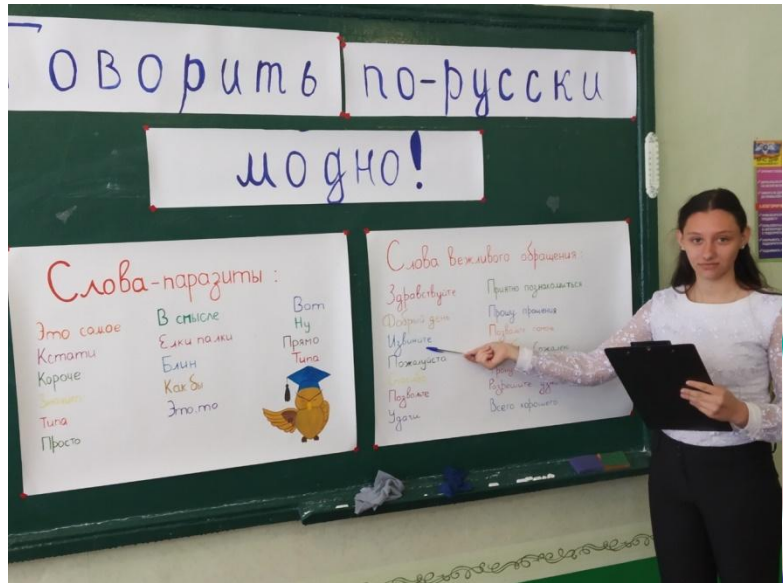 Говорить по-русски
модно!
Слова-паразиты:
Это самое
Кстати
Короче
Типа
Просто
В смысле
Елки палки
Блин
Как бы
Это.то
Вот
Ну
Прямо
Типа
Слова вежливого обращения:
Здравствуйте
Добрый день
Извините
Пожалуйста
Позвольте
Удачи
Приятно познакомиться
Прошу прощения
Разрешите
Всего хорошего